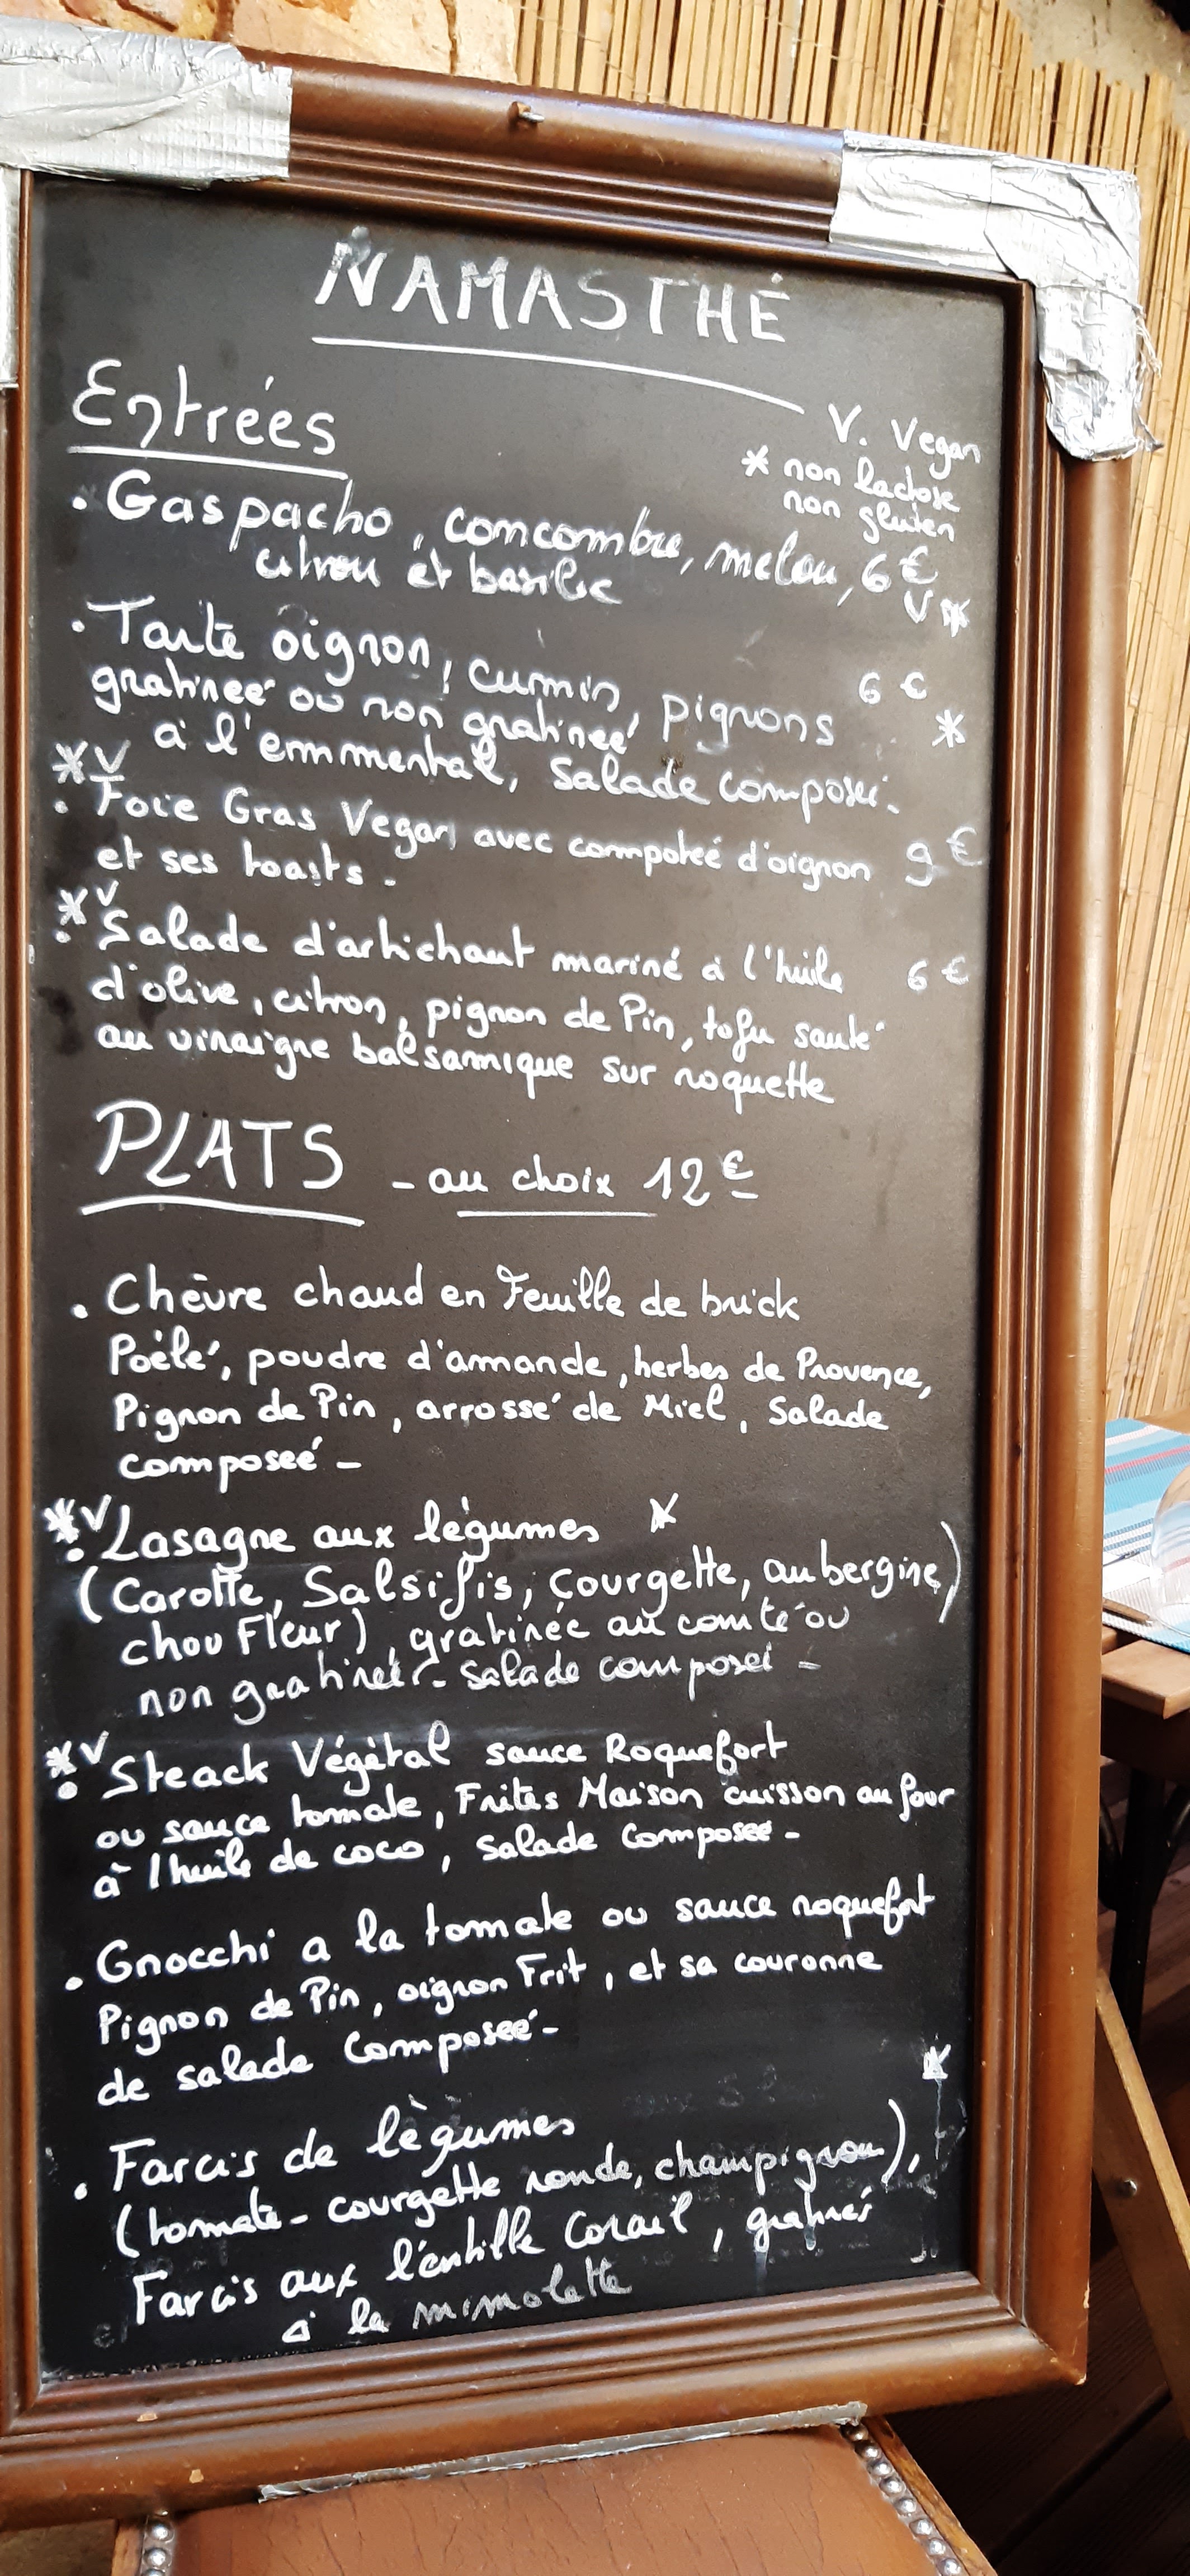 NAMASTHÉ
Entrées
V. Vegan
* non lactose
non gluten
. Gaspacho, comcombre, melon, 6 €
citron et basilic V *
. Tarte oignon, cumin, pignons 6 €
gratinée ou non gratinée *
à l'emmental, Salade composée.
* V
. Foie Gras Vegan avec compoteé d'oignon 9 €
et ses toasts -
* V
. Salade d'artichaut mariné à l'huile 6 €
d'olive, citron, pignon de Pin, tofu sauté
au vinaigre balsamique sur roquette
PLATS - au choix 12 €
. Chèvre chaud en Feuille de brick
Poêlé, poudre d'amande, herbes de Provence,
Pignon de Pin, arrossé de Miel, Salade
composeé -
* V . Lasagne aux légumes *
(Carotte, Salsifis, Courgette, aubergine,
chou Fleur), gratinée au comté ou
non gratinée - Salade composée -
* V . Steack Végétal sauce Roquefort
ou sauce tomate, Frites Maison cuisson au four
à l'huile de coco, Salade Composeé -
. Gnocchi a la tomate ou sauce roquefort
Pignon de Pin, oignon Frit, et sa couronne
de salade Composeé -
*
. Farcis de légumes
(tomate - courgette ronde, champignon),
Farcis aux l'entille Corail, gratinés
à la mimolette